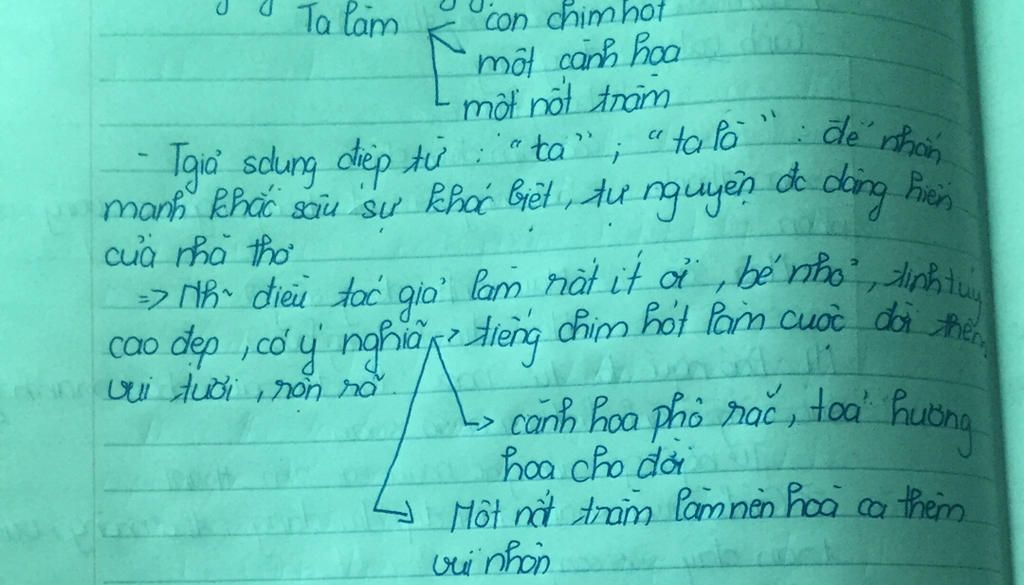 Ta làm con chim hót
một cành hoa
một nốt trầm
- Tgiả sdụng điệp từ : "ta" ; "ta là" : để nhấn
mạnh khắc sâu sự khác biệt, tự nguyện đc dâng hiến
của nhà thơ
=> Nh~ điều tác giả làm rất ít ỏi, bé nhỏ, tinh túy
cao đẹp, có ý nghĩa -> tiếng chim hót làm cuộc đời thêm
vui tươi, rộn rã.
-> cành hoa phô sắc, toả hương
hoa cho đời
-> Một nốt trầm làm nên hoà ca thêm
vui nhộn